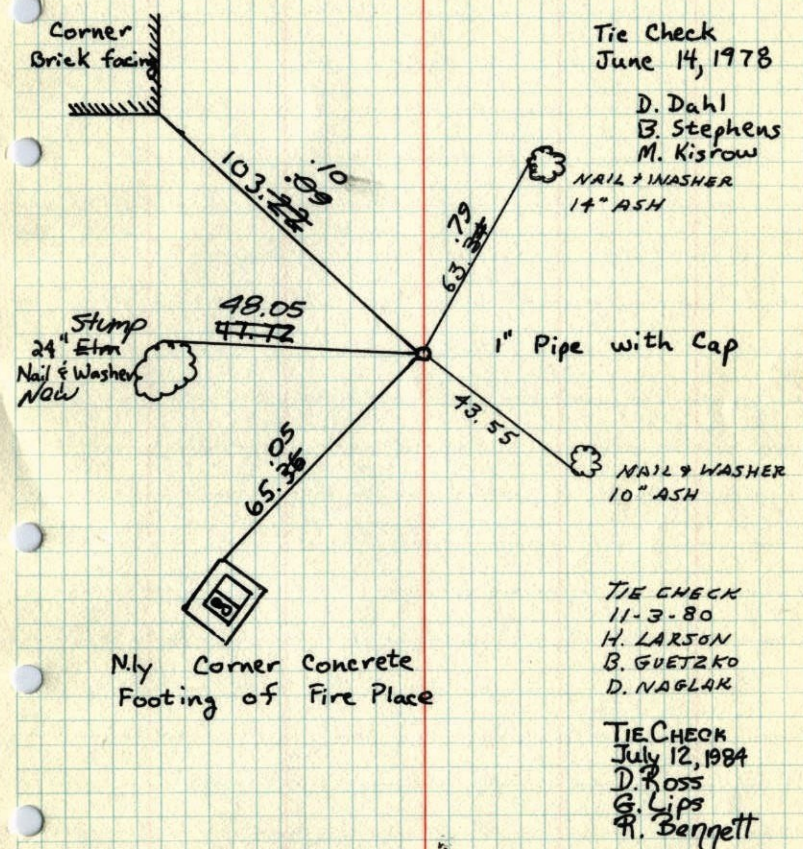 Corner
Brick facing
Tie Check
June 14, 1978
D. Dahl
B. Stephens
M. Kisrow
NAIL & WASHER
14" ASH
.10
.09
103.22
.79
63.34
48.05
47.72
Stump
24" Elm
Nail & Washer
NOW
1" Pipe with Cap
43.55
NAIL & WASHER
10" ASH
.05
65.36
N.ly Corner Concrete
Footing of Fire Place
TIE CHECK
11-3-80
H. LARSON
B. GUETZKO
D. NAGLAK
TIE CHECK
July 12, 1984
D. Ross
G. Lips
R. Bennett